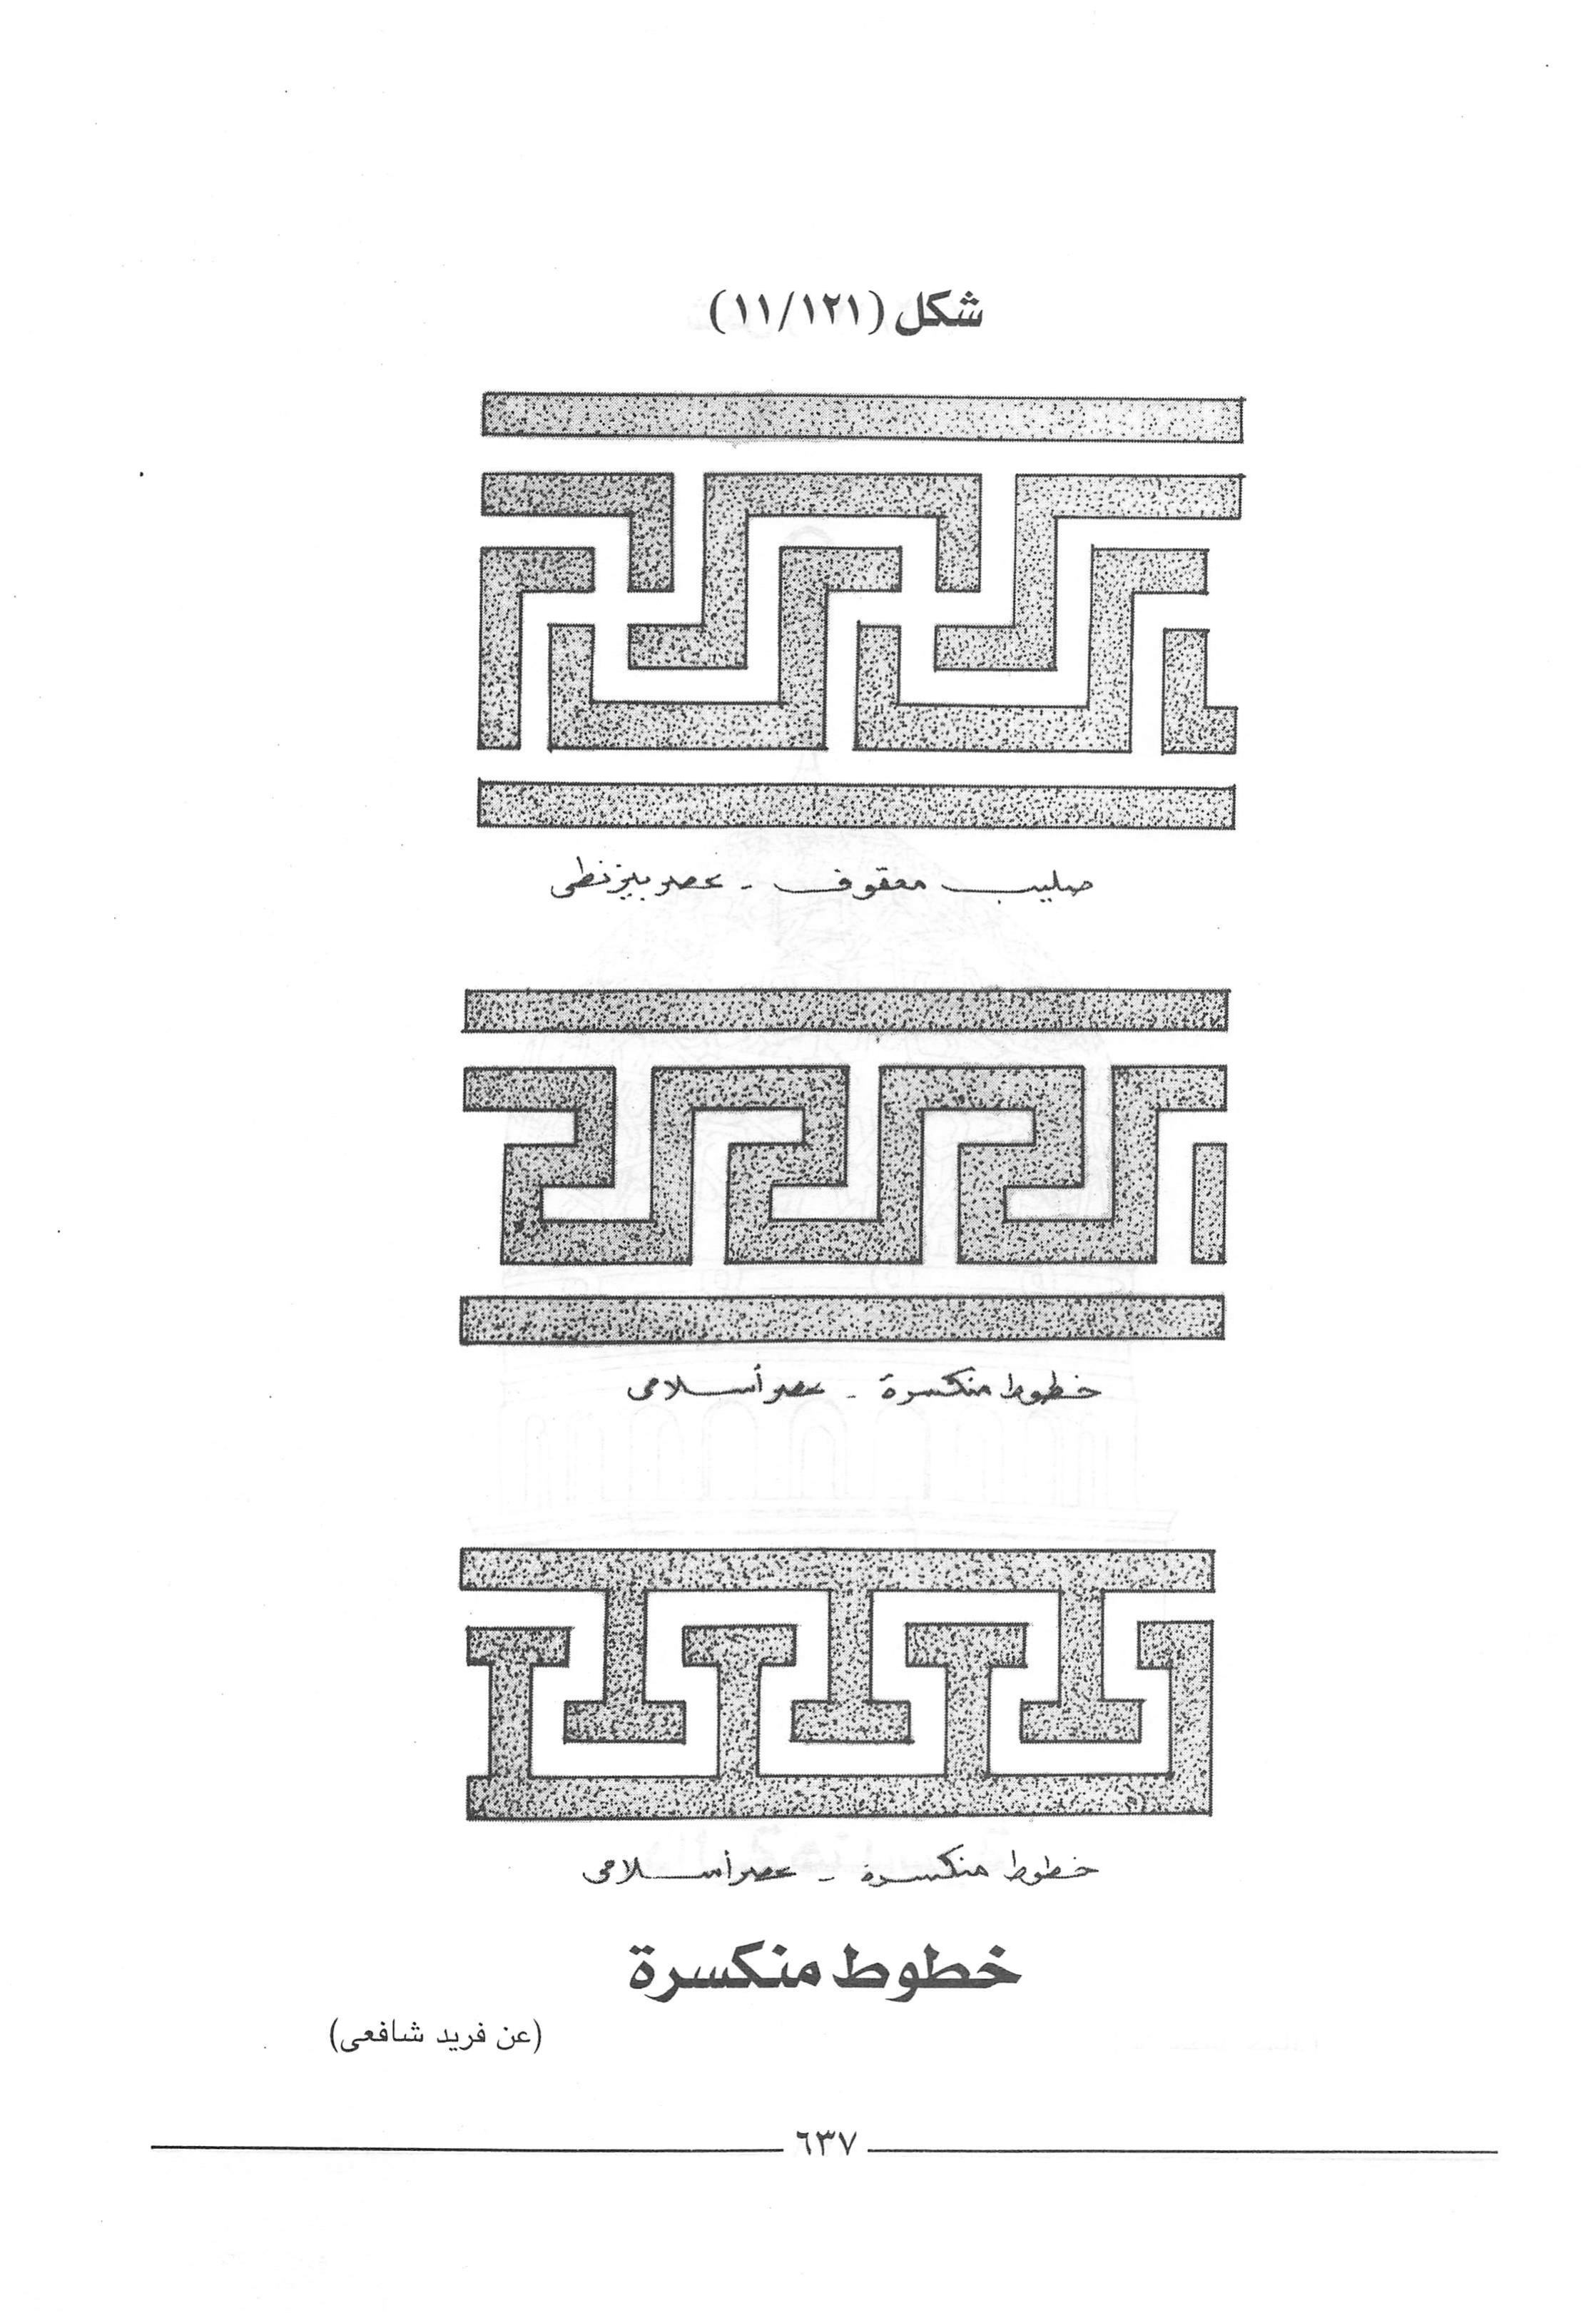 شكل (١١/١٢١)
صليب معقوف - عصر بيزنطى
خطوط منكسرة - عصر أسلامى
خطوط منكسرة - عصر أسلامى
خطوط منكسرة
(عن فريد شافعى)
٦٣٧